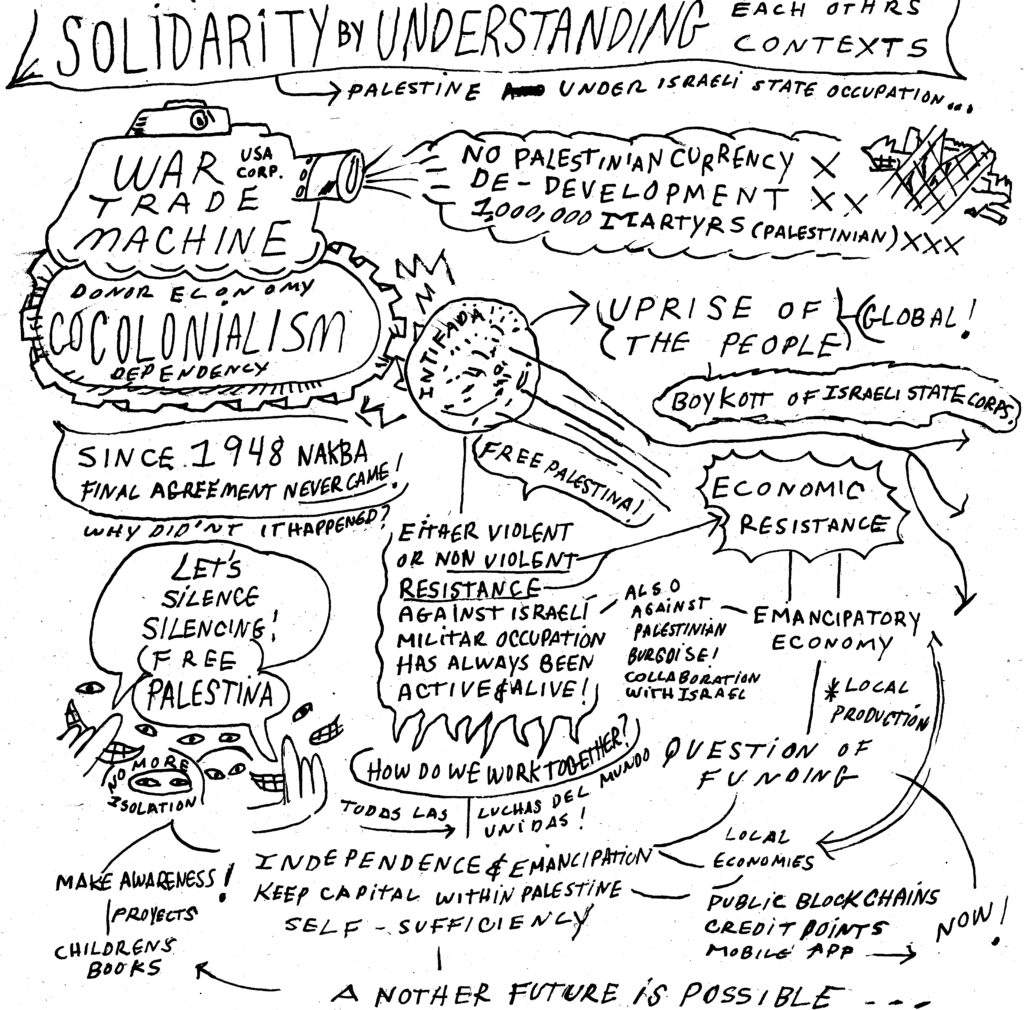 SOLIDARITY BY UNDERSTANDING EACH OTHRS
CONTEXTS
PALESTINE UNDER ISRAELI STATE OCCUPATION...
WAR
USA
CORP.
TRADE
MACHINE
DONOR ECONOMY
COCOLONIALISM
DEPENDENCY
NO PALESTINIAN CURRENCY X
DE-DEVELOPMENT XX
1,000,000 MARTYRS (PALESTINIAN) XXX
INTIFADA!
UPRISE OF
THE PEOPLE
GLOBAL!
BOYKOTT OF ISRAELI STATE CORPS.
SINCE 1948 NAKBA
FINAL AGREEMENT NEVER CAME!
WHY DID'NT IT HAPPENED?
FREE PALESTINA!
ECONOMIC
RESISTANCE
LET'S
SILENCE
SILENCING!
FREE
PALESTINA
NO MORE
ISOLATION
EITHER VIOLENT
OR NON VIOLENT
RESISTANCE
AGAINST ISRAELI
MILITAR OCCUPATION
HAS ALWAYS BEEN
ACTIVE & ALIVE!
ALSO
AGAINST
PALESTINIAN
BURGOISE!
COLLABORATION
WITH ISRAEL
EMANCIPATORY
ECONOMY
* LOCAL
PRODUCTION
HOW DO WE WORK TOGETHER?
TODAS LAS
LUCHAS DEL MUNDO
UNIDAS!
QUESTION OF
FUNDING
INDEPENDENCE & EMANCIPATION
KEEP CAPITAL WITHIN PALESTINE
SELF-SUFFICIENCY
LOCAL
ECONOMIES
PUBLIC BLOCKCHAINS
CREDIT POINTS
MOBILE APP
NOW!
MAKE AWARENESS!
PROYECTS
CHILDRENS
BOOKS
ANOTHER FUTURE IS POSSIBLE ---